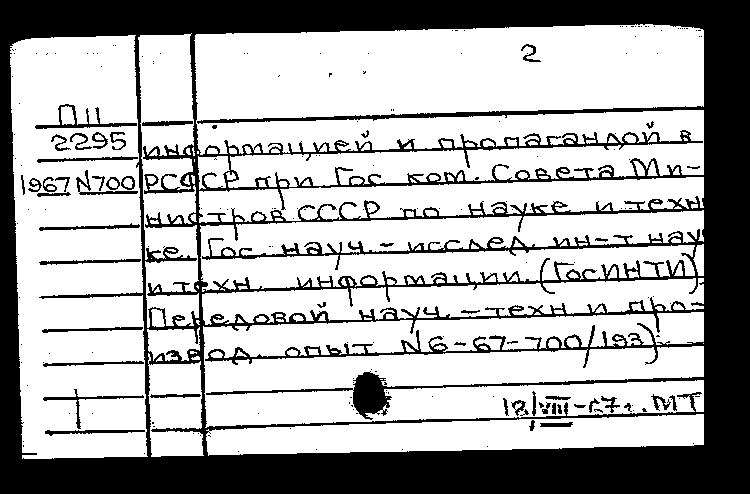 2
П11
2295 информацией и пропагандой в
1967 N700 РСФСР при Гос ком. Совета Ми-
нистров СССР по науке и техни
ке. Гос. науч.-исслед. ин-т науч
и техн. информации. (ГосИНТИ).
Передовой науч.-техн и про-
извод. опыт N6-67-700/193).
18/VIII-67г. МТ